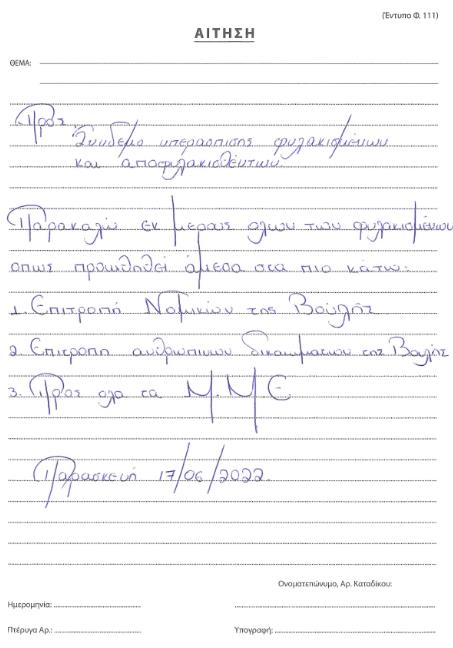 (Έντυπο Φ. 111)
ΑΙΤΗΣΗ
ΘΕΜΑ:
Προς
Σύνδεμο υπερασπισης φυλακισμένων
και αποφυλακισθέντων
Παρακαλώ εκ μερους ολων των φυλακισμένων
οπως προωθηθεί άμεσα στα πιο κάτω:
1. Επιτροπή Νομικών της Βουλής
2. Επιτροπη ανθρωπινων δικαιωματων της Βουλής
3. Προς ολα τα Μ.Μ.Ε
Παρασκευή 17/06/2022.
Ονοματεπώνυμο, Αρ. Καταδίκου:
Ημερομηνία:
Πτέρυγα Αρ.: Υπογραφή: